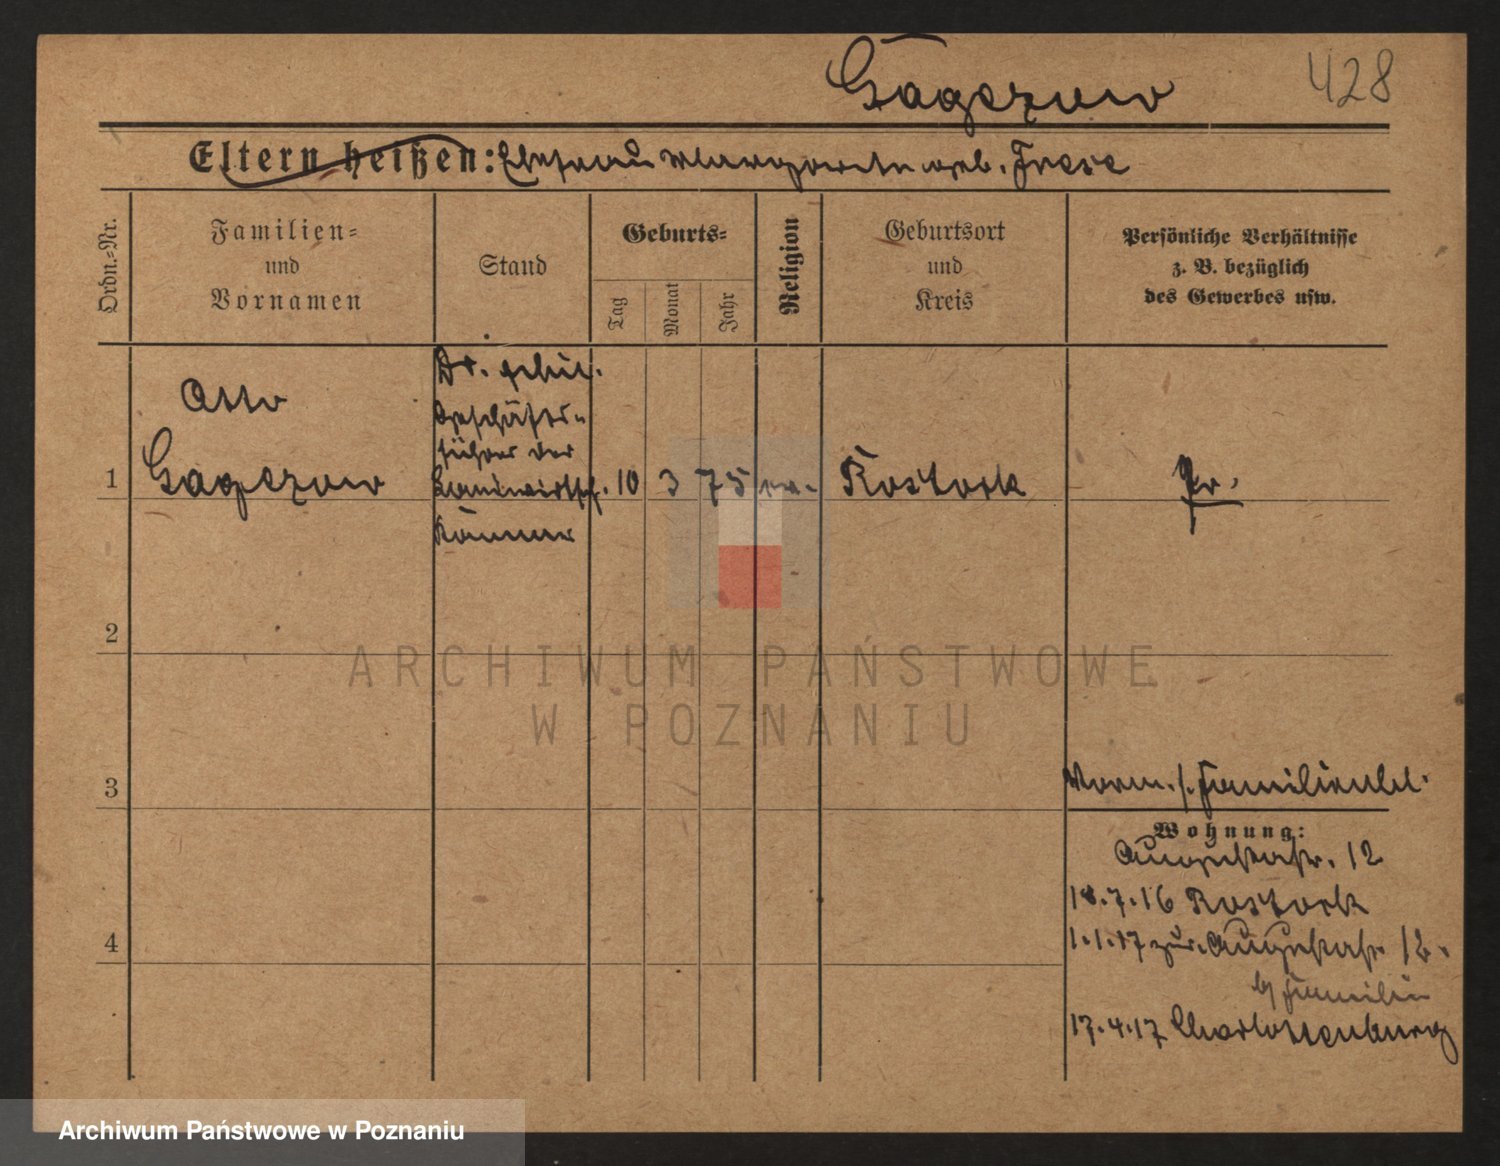 Gagzow
428
Eltern heißen: Ehefrau Margarete geb. Frese
Ordn.-Nr.
Familien-
und
Vornamen
Stand
Geburts-
Tag
Monat
Jahr
Religion
Geburtsort
und
Kreis
Persönliche Verhältnisse
z. B. bezüglich
des Gewerbes usw.
Otto
Dr. phil.
Geschäfts-
führer der
1 10 3 75 ev. Rostock Pr.
Landwirtsch.
Kammer
2
3
Vorm. s. Familienbl.
Wohnung:
Augustastr. 12
18.7.16 Rostock
4
1.1.17 zur. Augustastr. 12.
Familie
17.4.17 Charlottenburg
ARCHIWUM PAŃSTWOWE
W POZNANIU
Archiwum Państwowe w Poznaniu